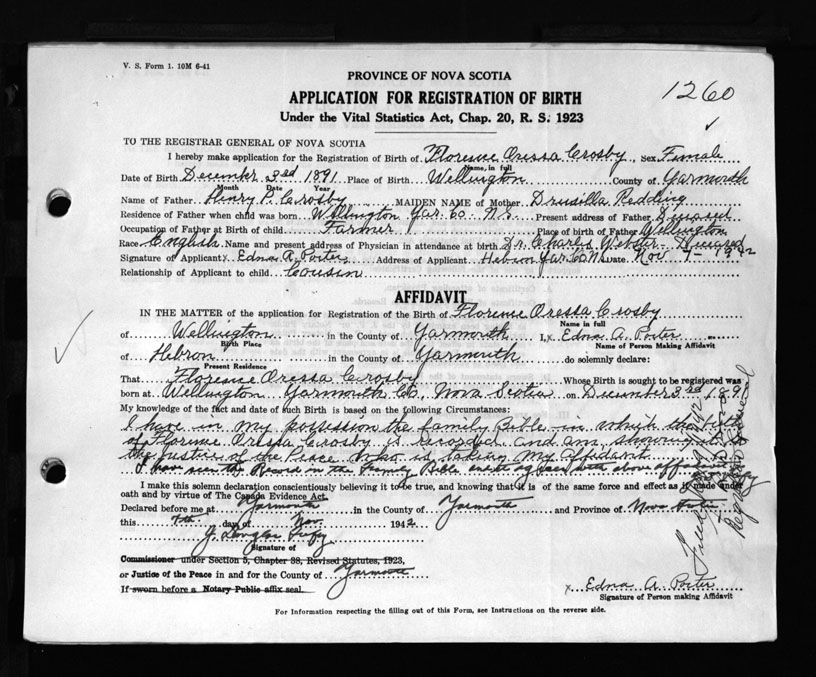 V. S. Form 1. 10M 6-41
PROVINCE OF NOVA SCOTIA
1260
APPLICATION FOR REGISTRATION OF BIRTH
Under the Vital Statistics Act, Chap. 20, R. S. 1923
TO THE REGISTRAR GENERAL OF NOVA SCOTIA
I hereby make application for the Registration of Birth of Florence Oressa Crosby, Sex Female
Name, in full
Date of Birth December 3rd 1891 Place of Birth Wellington County of Yarmouth
Month Date Year
Name of Father Henry P. Crosby MAIDEN NAME of Mother Drusilla Redding
Residence of Father when child was born Wellington Yar. Co. N.S. Present address of Father Deceased
Occupation of Father at Birth of child Farmer Place of birth of Father Wellington
Race English Name and present address of Physician in attendance at birth Dr. Charles Webster Deceased
Signature of Applicant X Edna A. Porter Address of Applicant Hebron Yar. Co. N.S. Date Nov 7- 1942
Relationship of Applicant to child Cousin
AFFIDAVIT
IN THE MATTER of the application for Registration of the Birth of Florence Oressa Crosby
Name in full
of Wellington in the County of Yarmouth I, X Edna A. Porter
Birth Place Name of Person Making Affidavit
of Hebron in the County of Yarmouth do solemnly declare:
Present Residence
That Florence Oressa Crosby Whose Birth is sought to be registered was
born at Wellington Yarmouth Co, Nova Scotia on December 3rd 1891
My knowledge of the fact and date of such Birth is based on the following Circumstances:
I have in my possession the family Bible in which the birth
of Florence Oressa Crosby is recorded and am showing it to
the Justice of the Peace who is taking my Affidavit
I have seen the Record in the Family Bible
I make this solemn declaration conscientiously believing it to be true, and knowing that it is of the same force and effect as if made under
oath and by virtue of The Canada Evidence Act.
Declared before me at Yarmouth in the County of Yarmouth and Province of Nova Scotia
this 7th day of Nov. 1942
J. Douglas
Signature of
Commissioner under Section 5, Chapter 38, Revised Statutes, 1923,
or Justice of the Peace in and for the County of Yarmouth
If sworn before a Notary Public affix seal.
X Edna A. Porter
Signature of Person making Affidavit
For Information respecting the filling out of this Form, see Instructions on the reverse side.